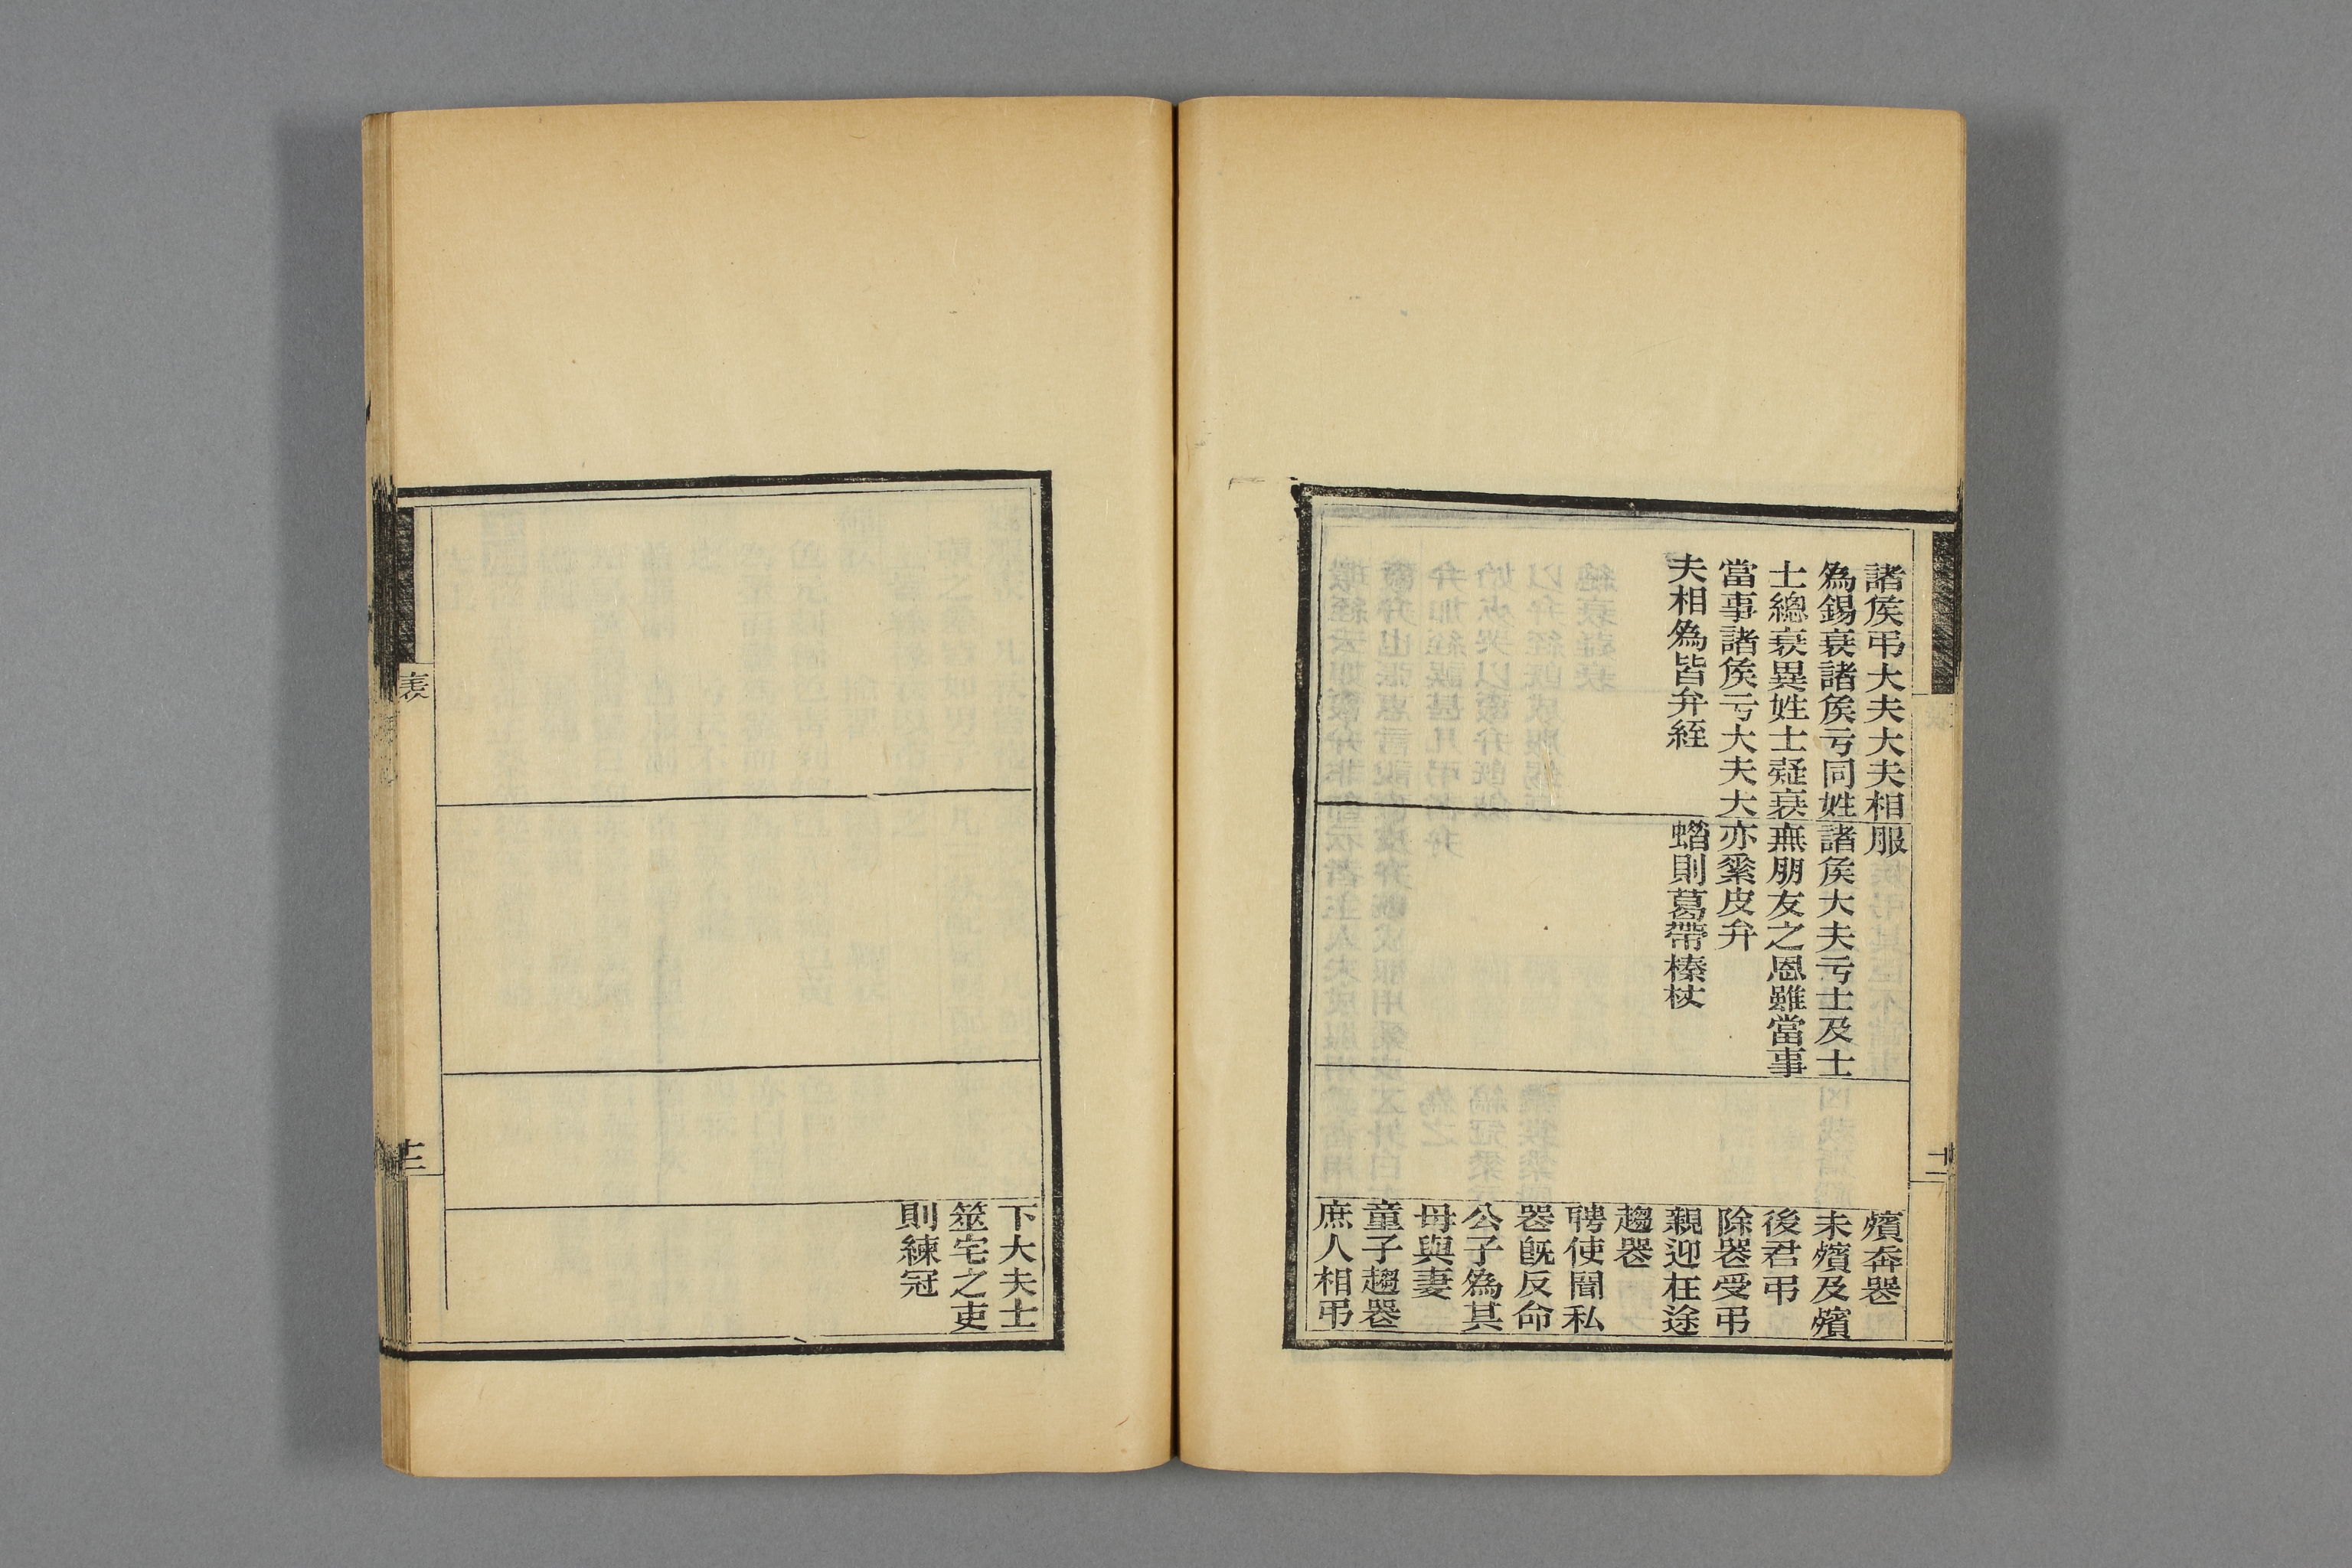 諸矦弔大夫大夫相
為錫衰諸矦亏同姓
士緦衰異姓士疑衰
當事諸矦亏大夫大
夫相為皆弁絰
服
諸矦大夫亏士及士
無朋友之恩雖當事
亦綦皮弁
蜡則葛帶榛杖
殯奔喪
未殯及殯
後君弔
除喪受弔
親迎在途
趨喪
聘使聞私
喪旣反命
公子為其
母與妻
童子趨喪
庶人相弔
十二
下大夫士
筮宅之吏
則練冠
表
十二